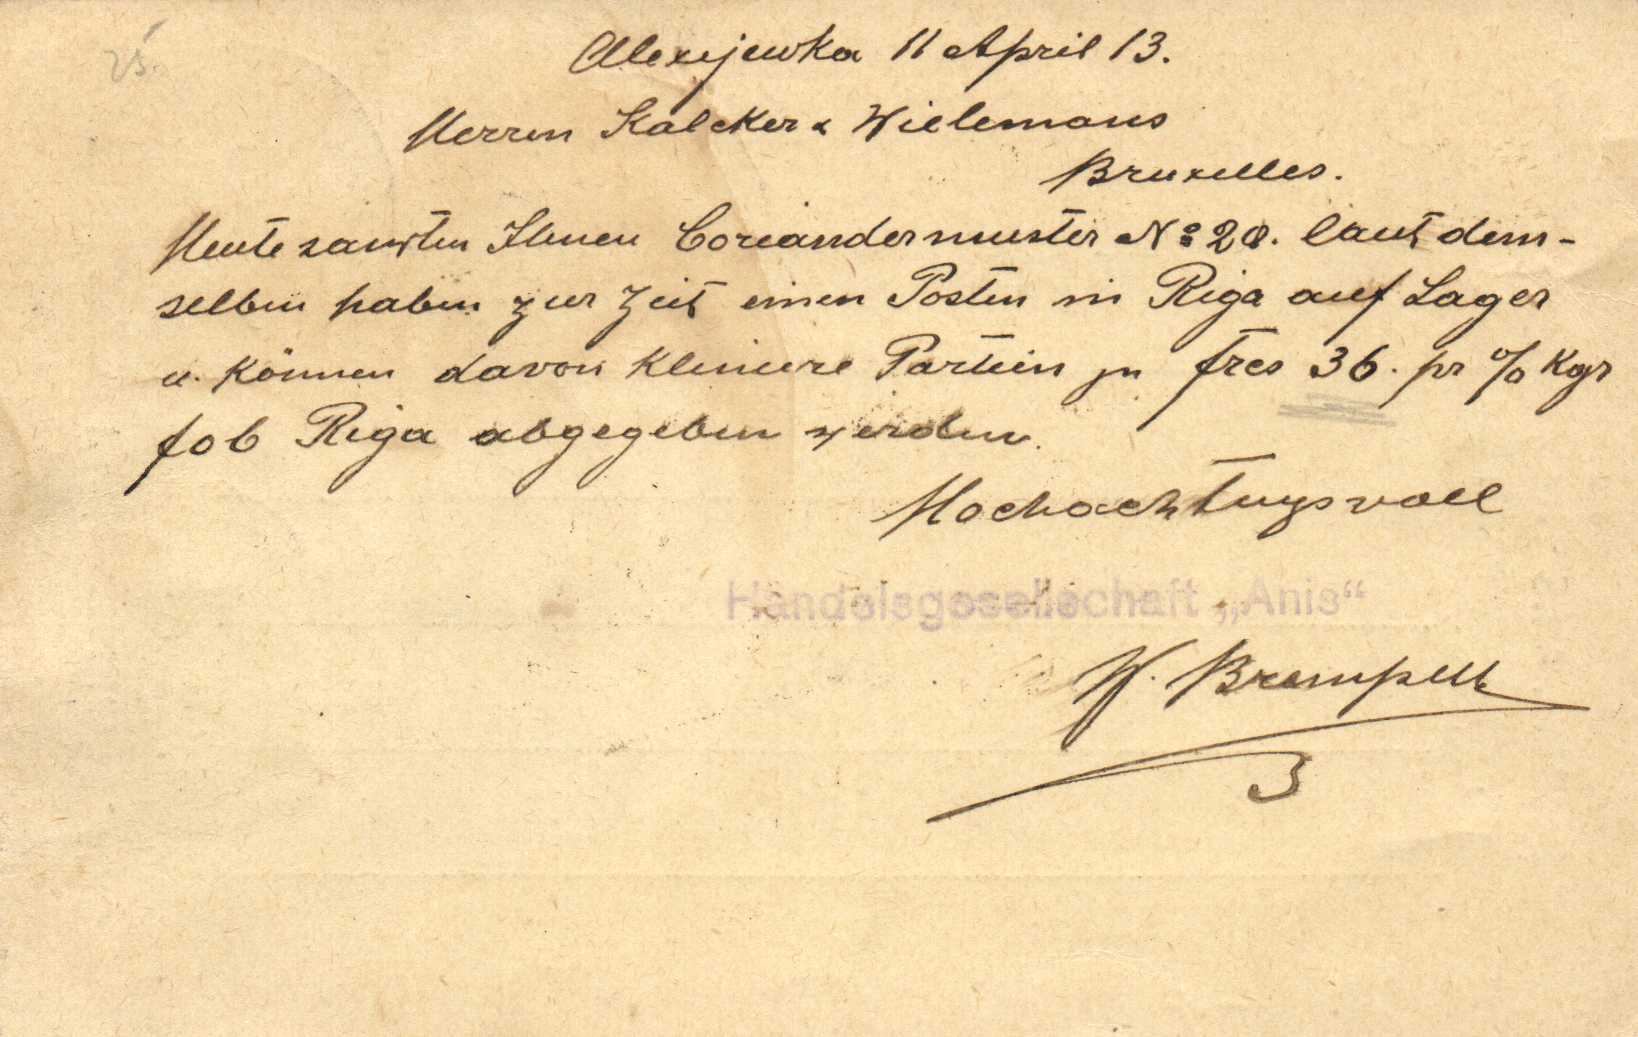 25.
Alexejewka 11 April 13.
Herren Kalcker & Wielemans
Bruxelles.
Heute sandten Ihnen Coriandermuster No 20. laut dem-
selben haben zur Zeit einen Posten in Riga auf Lager
u. können davon kleinere Partien zu frcs 36. pr % Kgr
fob Riga abgegeben werden.
Hochachtungsvoll
Handelsgesellschaft „Anis“
W.